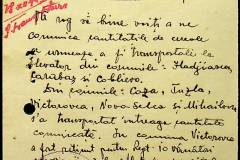 Vă rog să bine voiți a ne
comunica cantitatile de cereale
ce urmeaza a fi transportate la
Elevator din comunele: Hadjiasca,
Caraibaz și Cobliero.
Din comunele: Coza, Tuzla,
Victorovca, Novo-Selca și Mihailovca
s'a transportat intreaga cantitate
comunicată. In comuna Victorovca
a fost reținut pentru Regt. 10 vânători